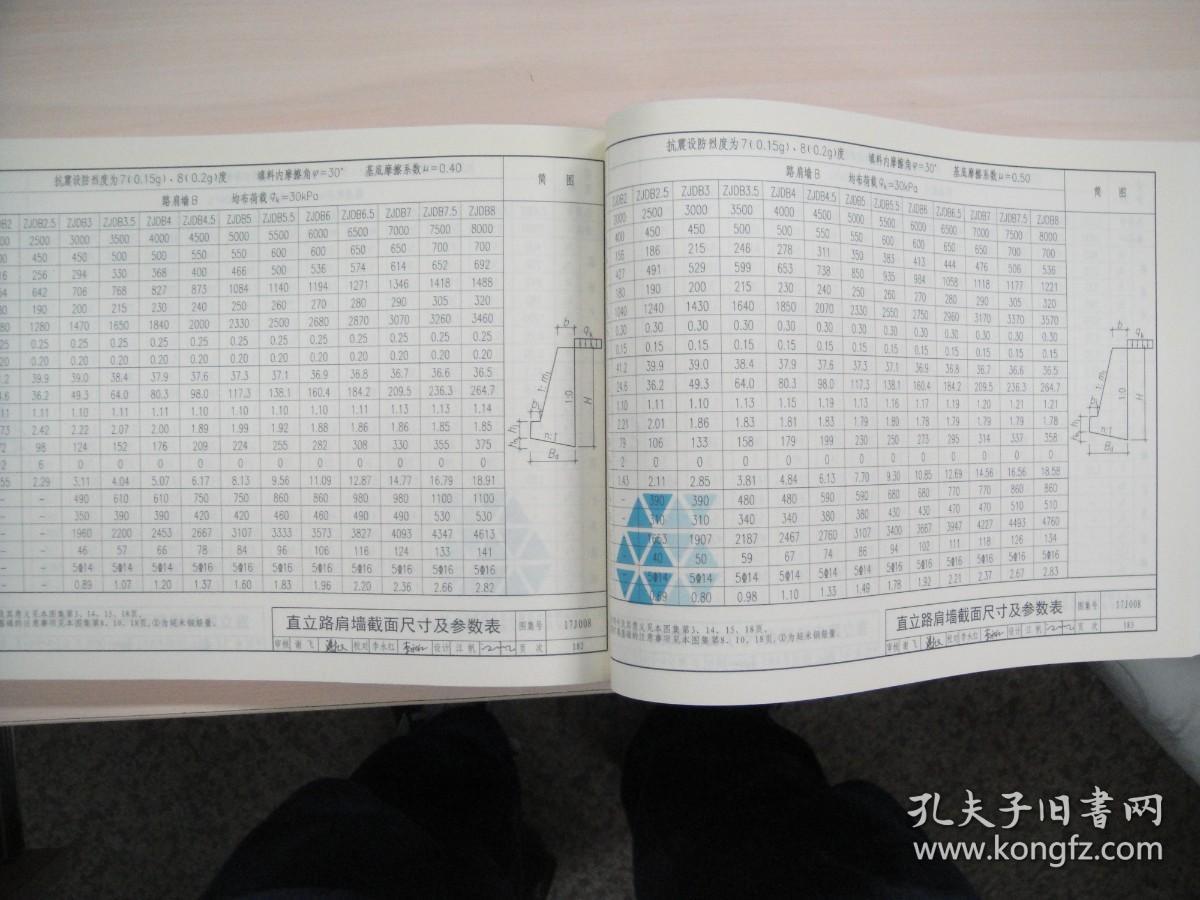 抗震设防烈度为7(0.15g)、8(0.2g)度 填料内摩擦角φ=30° 基底摩擦系数μ=0.40
路肩墙B 均布荷载qk=30kPa
简 图
ZJDB2.5 ZJDB3 ZJDB3.5 ZJDB4 ZJDB4.5 ZJDB5 ZJDB5.5 ZJDB6 ZJDB6.5 ZJDB7 ZJDB7.5 ZJDB8
2500 3000 3500 4000 4500 5000 5500 6000 6500 7000 7500 8000
450 450 500 500 550 550 600 600 650 650 700 700
256 294 330 368 400 466 500 536 574 614 652 692
642 706 768 827 873 1084 1140 1194 1271 1346 1418 1488
190 200 215 230 240 250 260 270 280 290 305 320
1280 1470 1650 1840 2000 2330 2500 2680 2870 3070 3260 3460
0.25 0.25 0.25 0.25 0.25 0.25 0.25 0.25 0.25 0.25 0.25 0.25
0.20 0.20 0.20 0.20 0.20 0.20 0.20 0.20 0.20 0.20 0.20 0.20
39.9 39.0 38.4 37.9 37.6 37.3 37.1 36.9 36.8 36.7 36.6 36.5
36.2 49.3 64.0 80.3 98.0 117.3 138.1 160.4 184.2 209.5 236.3 264.7
1.11 1.10 1.11 1.11 1.10 1.10 1.10 1.10 1.11 1.13 1.13 1.14
2.42 2.22 2.07 2.00 1.89 1.99 1.92 1.88 1.86 1.86 1.85 1.85
98 124 152 176 209 224 255 282 308 330 355 375
6 0 0 0 0 0 0 0 0 0 0 0
2.29 3.11 4.04 5.07 6.17 8.13 9.56 11.09 12.87 14.77 16.79 18.91
- - 490 610 610 750 750 860 860 980 980 1100 1100
- - 350 390 390 420 420 460 460 490 490 530 530
- - 1960 2200 2453 2667 3107 3333 3573 3827 4093 4347 4613
- - 46 57 66 78 84 96 106 116 124 133 141
- - 5Φ14 5Φ14 5Φ14 5Φ16 5Φ16 5Φ16 5Φ16 5Φ16 5Φ16 5Φ16 5Φ16
- - 0.89 1.07 1.20 1.37 1.60 1.83 1.96 2.20 2.36 2.66 2.82
b qk
1:m1
1:0
H
n:1
Bd
意义见本图集第3、14、15、18页。
注意事项见本图集第8、10、18页,①为延米钢筋量。
直立路肩墙截面尺寸及参数表 图集号 17J008
审核 谢飞 校对 李永红 设计 江帆 页次 182
抗震设防烈度为7(0.15g)、8(0.2g)度 填料内摩擦角φ=30° 基底摩擦系数μ=0.50
路肩墙B 均布荷载qk=30kPa
简 图
ZJDB2 ZJDB2.5 ZJDB3 ZJDB3.5 ZJDB4 ZJDB4.5 ZJDB5 ZJDB5.5 ZJDB6 ZJDB6.5 ZJDB7 ZJDB7.5 ZJDB8
2000 2500 3000 3500 4000 4500 5000 5500 6000 6500 7000 7500 8000
400 450 450 500 500 550 550 600 600 650 650 700 700
156 186 215 246 278 311 350 383 413 444 476 506 536
427 491 529 599 653 738 850 935 984 1058 1118 1177 1221
180 190 200 215 230 240 250 260 270 280 290 305 320
1040 1240 1430 1640 1850 2070 2330 2550 2750 2960 3170 3370 3570
0.30 0.30 0.30 0.30 0.30 0.30 0.30 0.30 0.30 0.30 0.30 0.30 0.30
0.15 0.15 0.15 0.15 0.15 0.15 0.15 0.15 0.15 0.15 0.15 0.15 0.15
41.2 39.9 39.0 38.4 37.9 37.6 37.3 37.1 36.9 36.8 36.7 36.6 36.5
24.6 36.2 49.3 64.0 80.3 98.0 117.3 138.1 160.4 184.2 209.5 236.3 264.7
1.10 1.11 1.10 1.13 1.15 1.19 1.13 1.16 1.17 1.19 1.20 1.21 1.21
2.21 2.01 1.86 1.83 1.81 1.83 1.79 1.80 1.78 1.79 1.79 1.79 1.78
79 106 133 158 179 199 230 250 273 295 314 337 358
2 0 0 0 0 0 0 0 0 0 0 0 0
1.43 2.11 2.85 3.81 4.84 6.13 7.70 9.30 10.85 12.69 14.56 16.56 18.58
- 390 390 480 480 590 590 680 680 770 770 860 860
- 310 310 340 340 380 380 430 430 470 470 510 510
- 1663 1907 2187 2467 2760 3107 3400 3667 3947 4227 4493 4760
- 40 50 59 67 74 86 94 102 111 118 126 134
- 5Φ14 5Φ14 5Φ14 5Φ14 5Φ14 5Φ16 5Φ16 5Φ16 5Φ16 5Φ16 5Φ16 5Φ16
- 0.69 0.80 0.98 1.10 1.33 1.49 1.78 1.92 2.21 2.37 2.67 2.83
b qk
1:m1
1:0
H
n:1
Bd
意义见本图集第3、14、15、18页。
注意事项见本图集第8、10、18页,①为延米钢筋量。
直立路肩墙截面尺寸及参数表 图集号 17J008
审核 谢飞 校对 李永红 设计 江帆 页次 183
孔夫子旧书网
www.kongfz.com